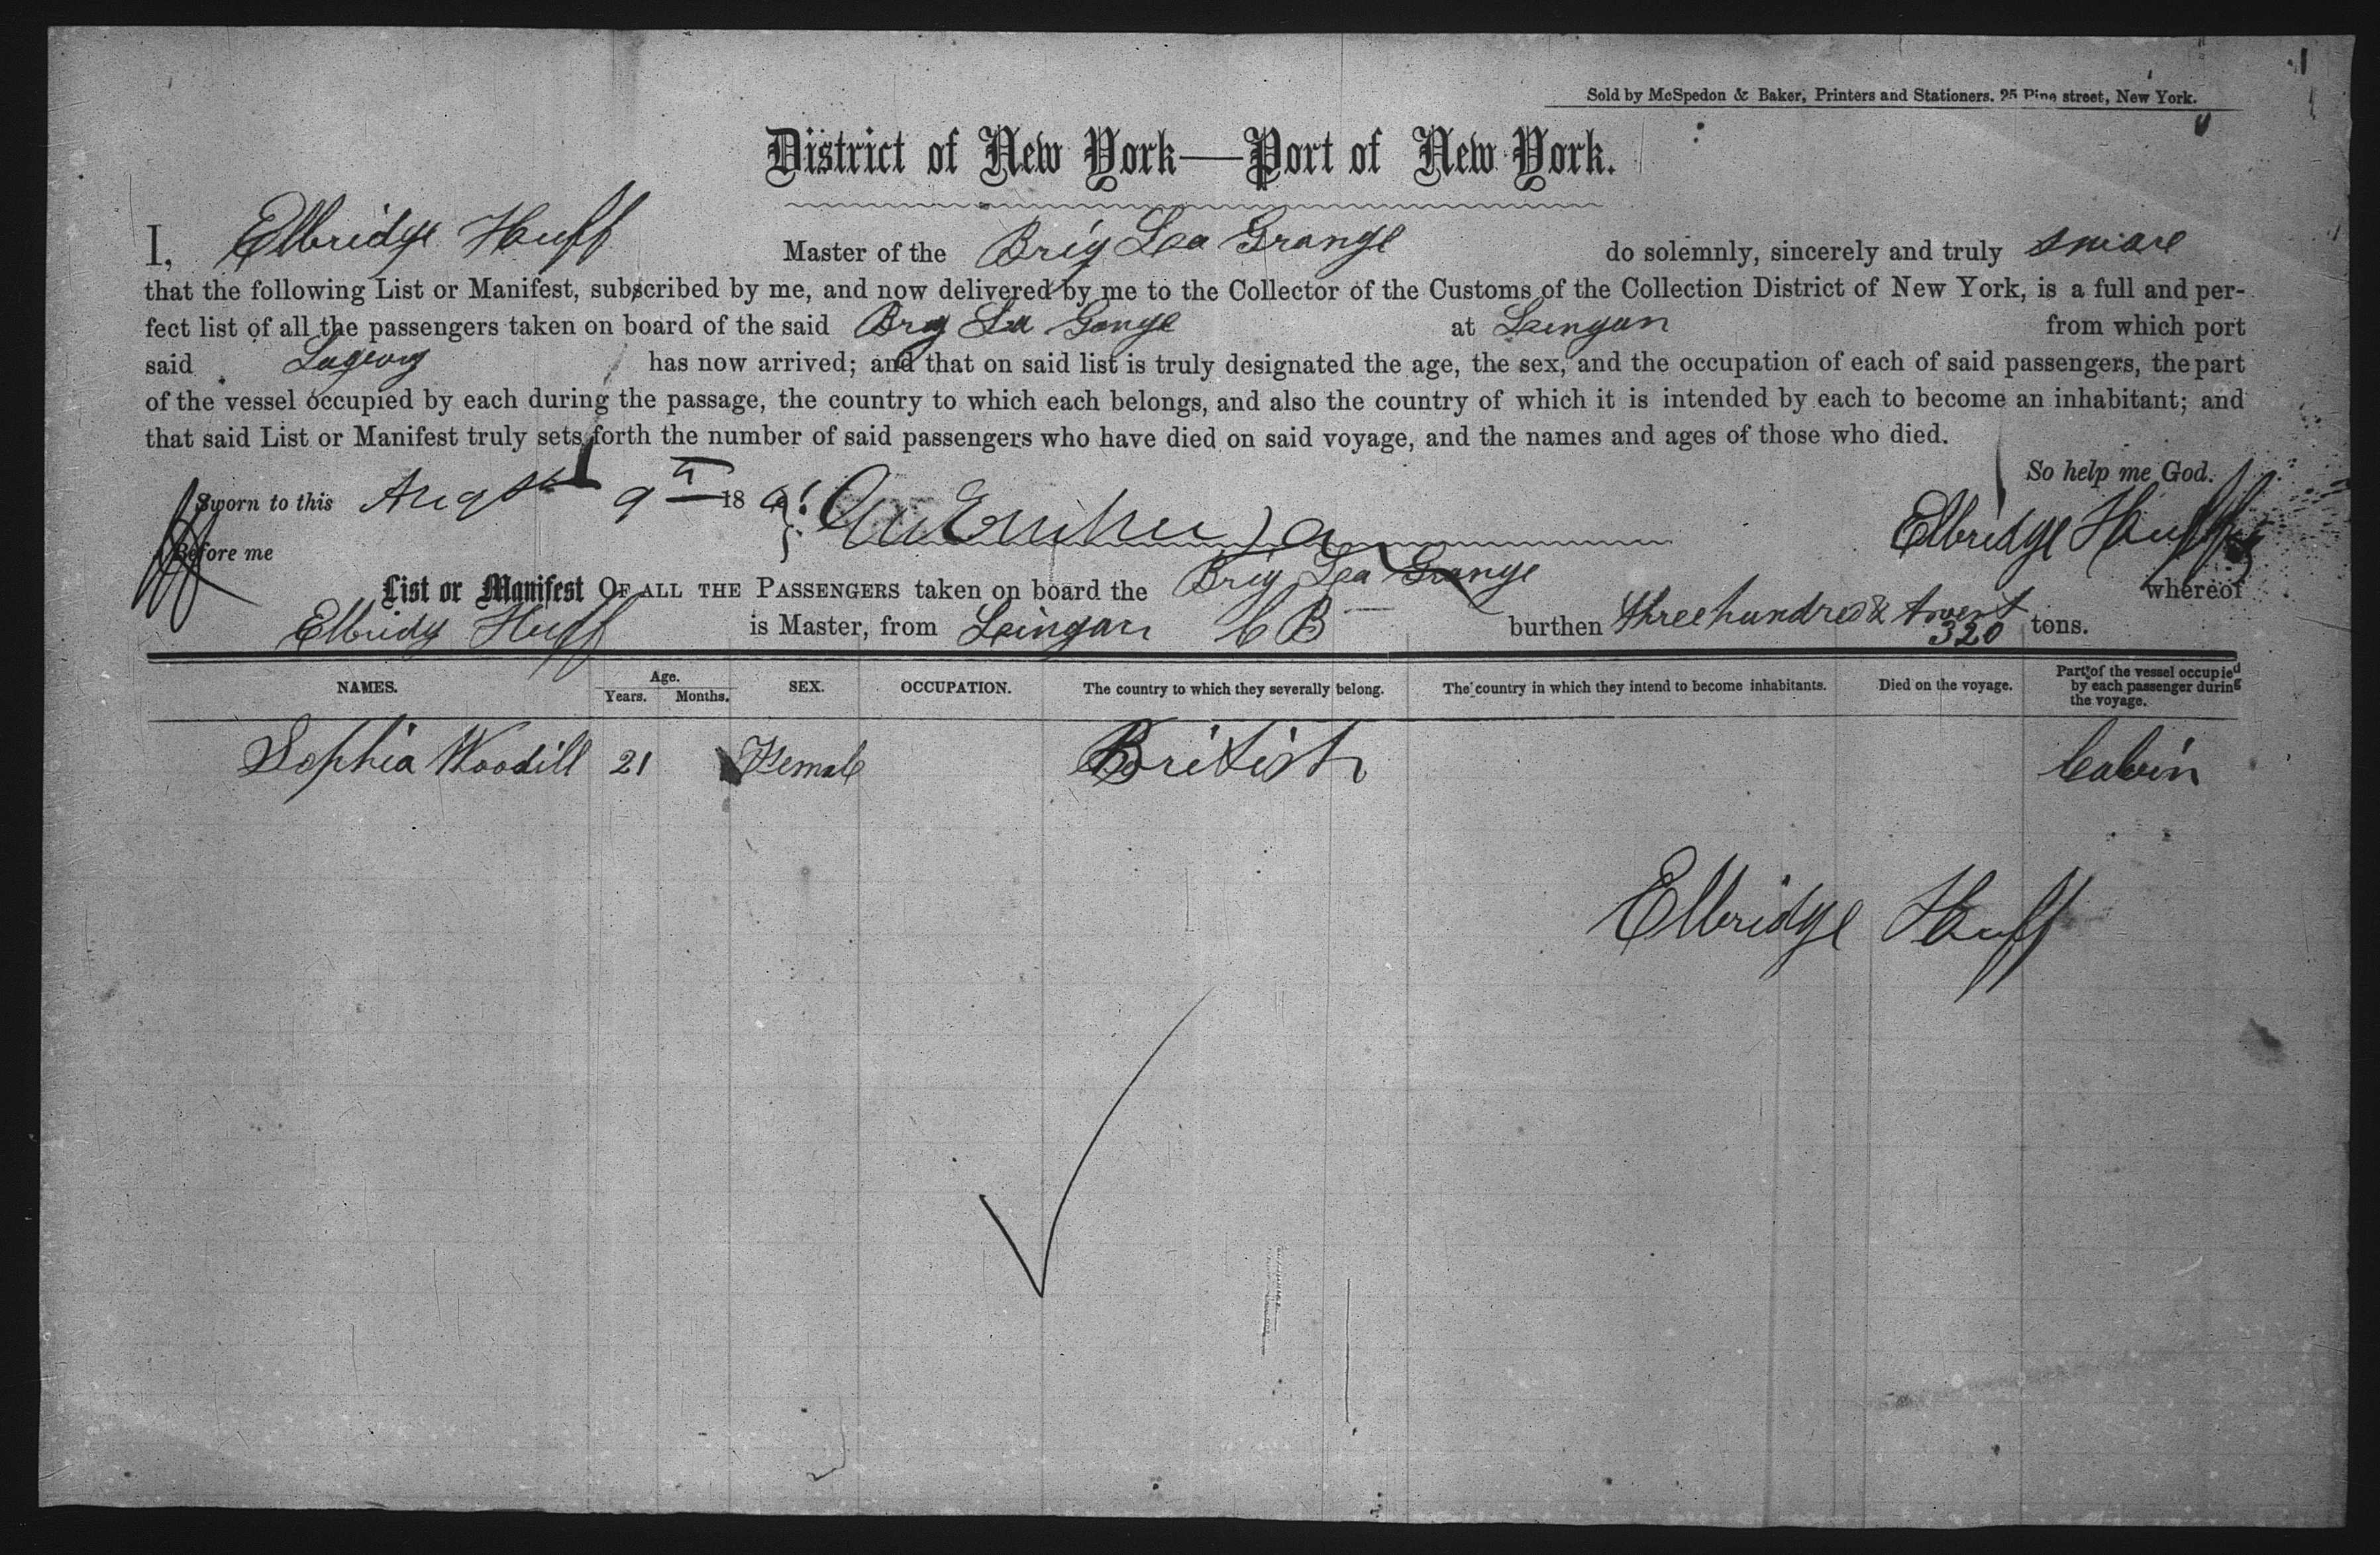 Sold by McSpedon & Baker, Printers and Stationers. 25 Pine street, New York.
District of New York—Port of New York.
I, Elbridge Huff Master of the Brig Lea Grange do solemnly, sincerely and truly
that the following List or Manifest, subscribed by me, and now delivered by me to the Collector of the Customs of the Collection District of New York, is a full and per-
fect list of all the passengers taken on board of the said Brig La at Leingan from which port
said has now arrived; and that on said list is truly designated the age, the sex, and the occupation of each of said passengers, the part
of the vessel occupied by each during the passage, the country to which each belongs, and also the country of which it is intended by each to become an inhabitant; and
that said List or Manifest truly sets forth the number of said passengers who have died on said voyage, and the names and ages of those who died.
So help me God.
Sworn to this 9 18
Elbridge Huff
Before me
List or Manifest OF ALL THE PASSENGERS taken on board the Brig Lea Grange whereof
Elbridg Huff is Master, from Leingan C B burthen three hundred & twent 320 tons.
NAMES. Age. Years. Months. SEX. OCCUPATION. The country to which they severally belong. The country in which they intend to become inhabitants. Died on the voyage. Part of the vessel occupied by each passenger during the voyage.
Sophia Woodill 21 Female British Cabin
Elbridge Huff